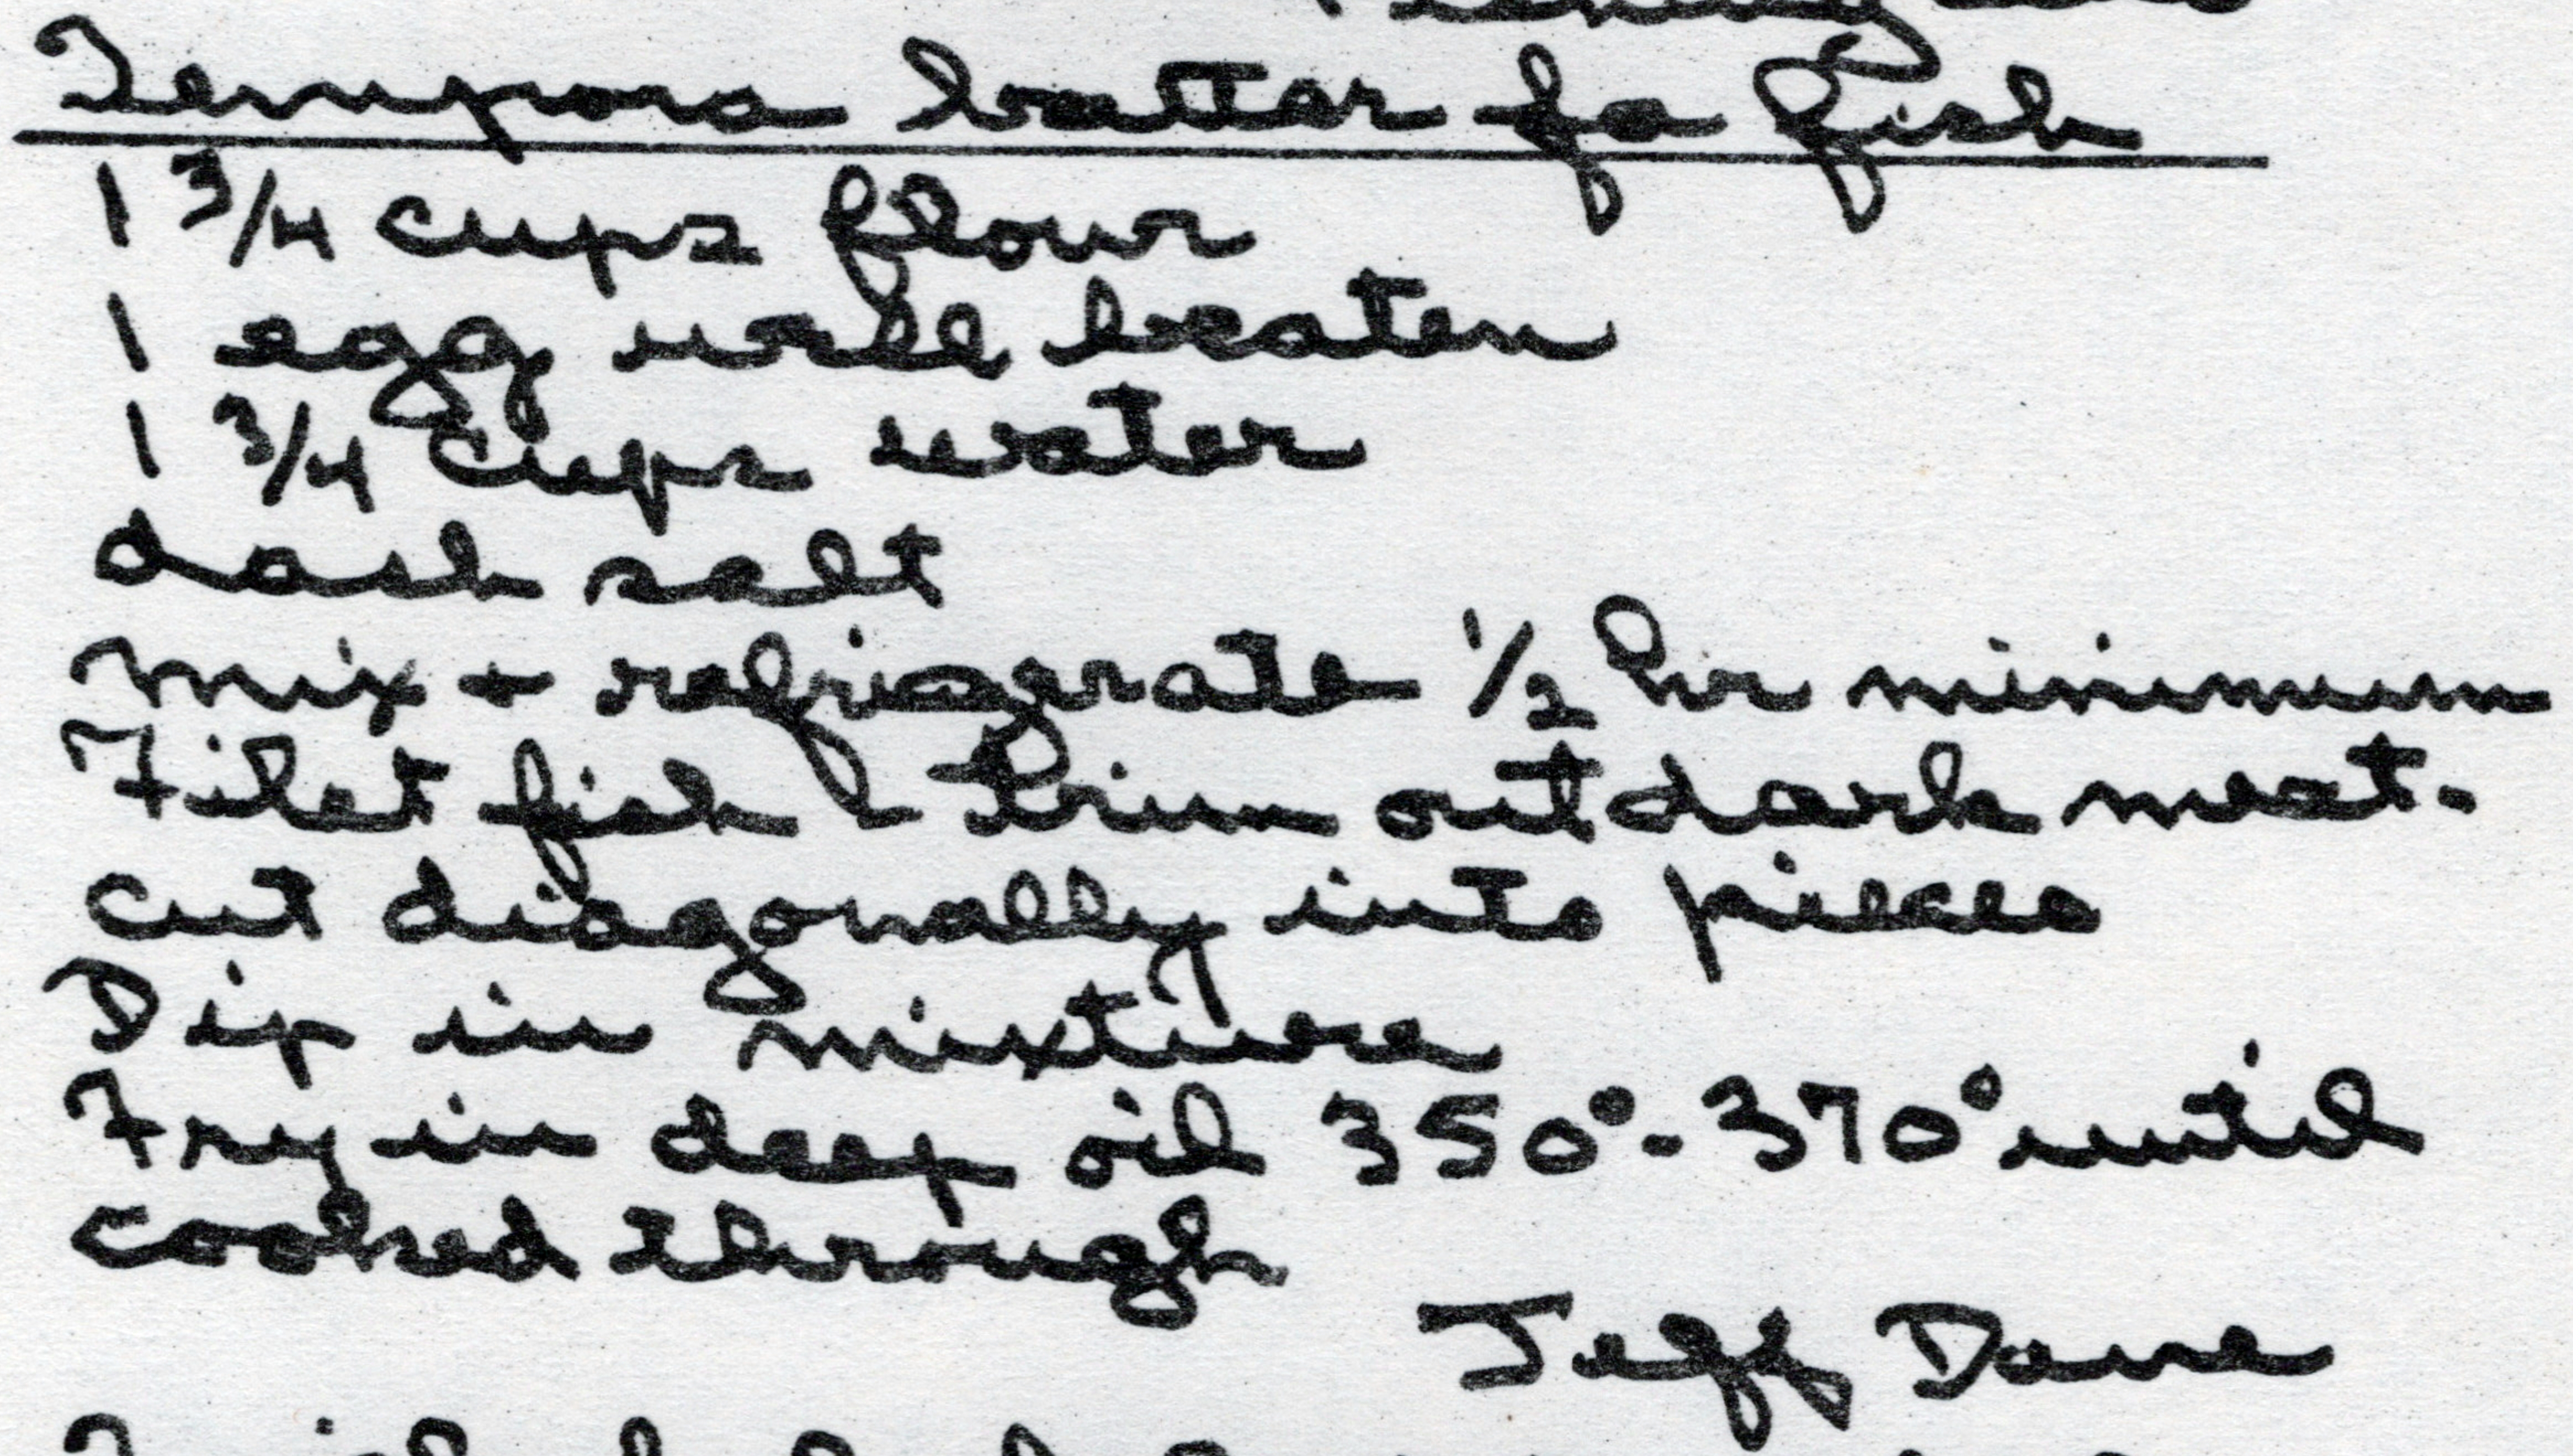 Tempora batter fo fish
1 3/4 cups flour
1 egg well beaten
1 3/4 cups water
dash salt
mix + refrigerate 1/2 hr minimum
Filet fish & trim out dark meat.
cut diagonally into pieces
Dip in mixture
Fry in deep oil 350°-370° until
cooked through
Jeff Dane